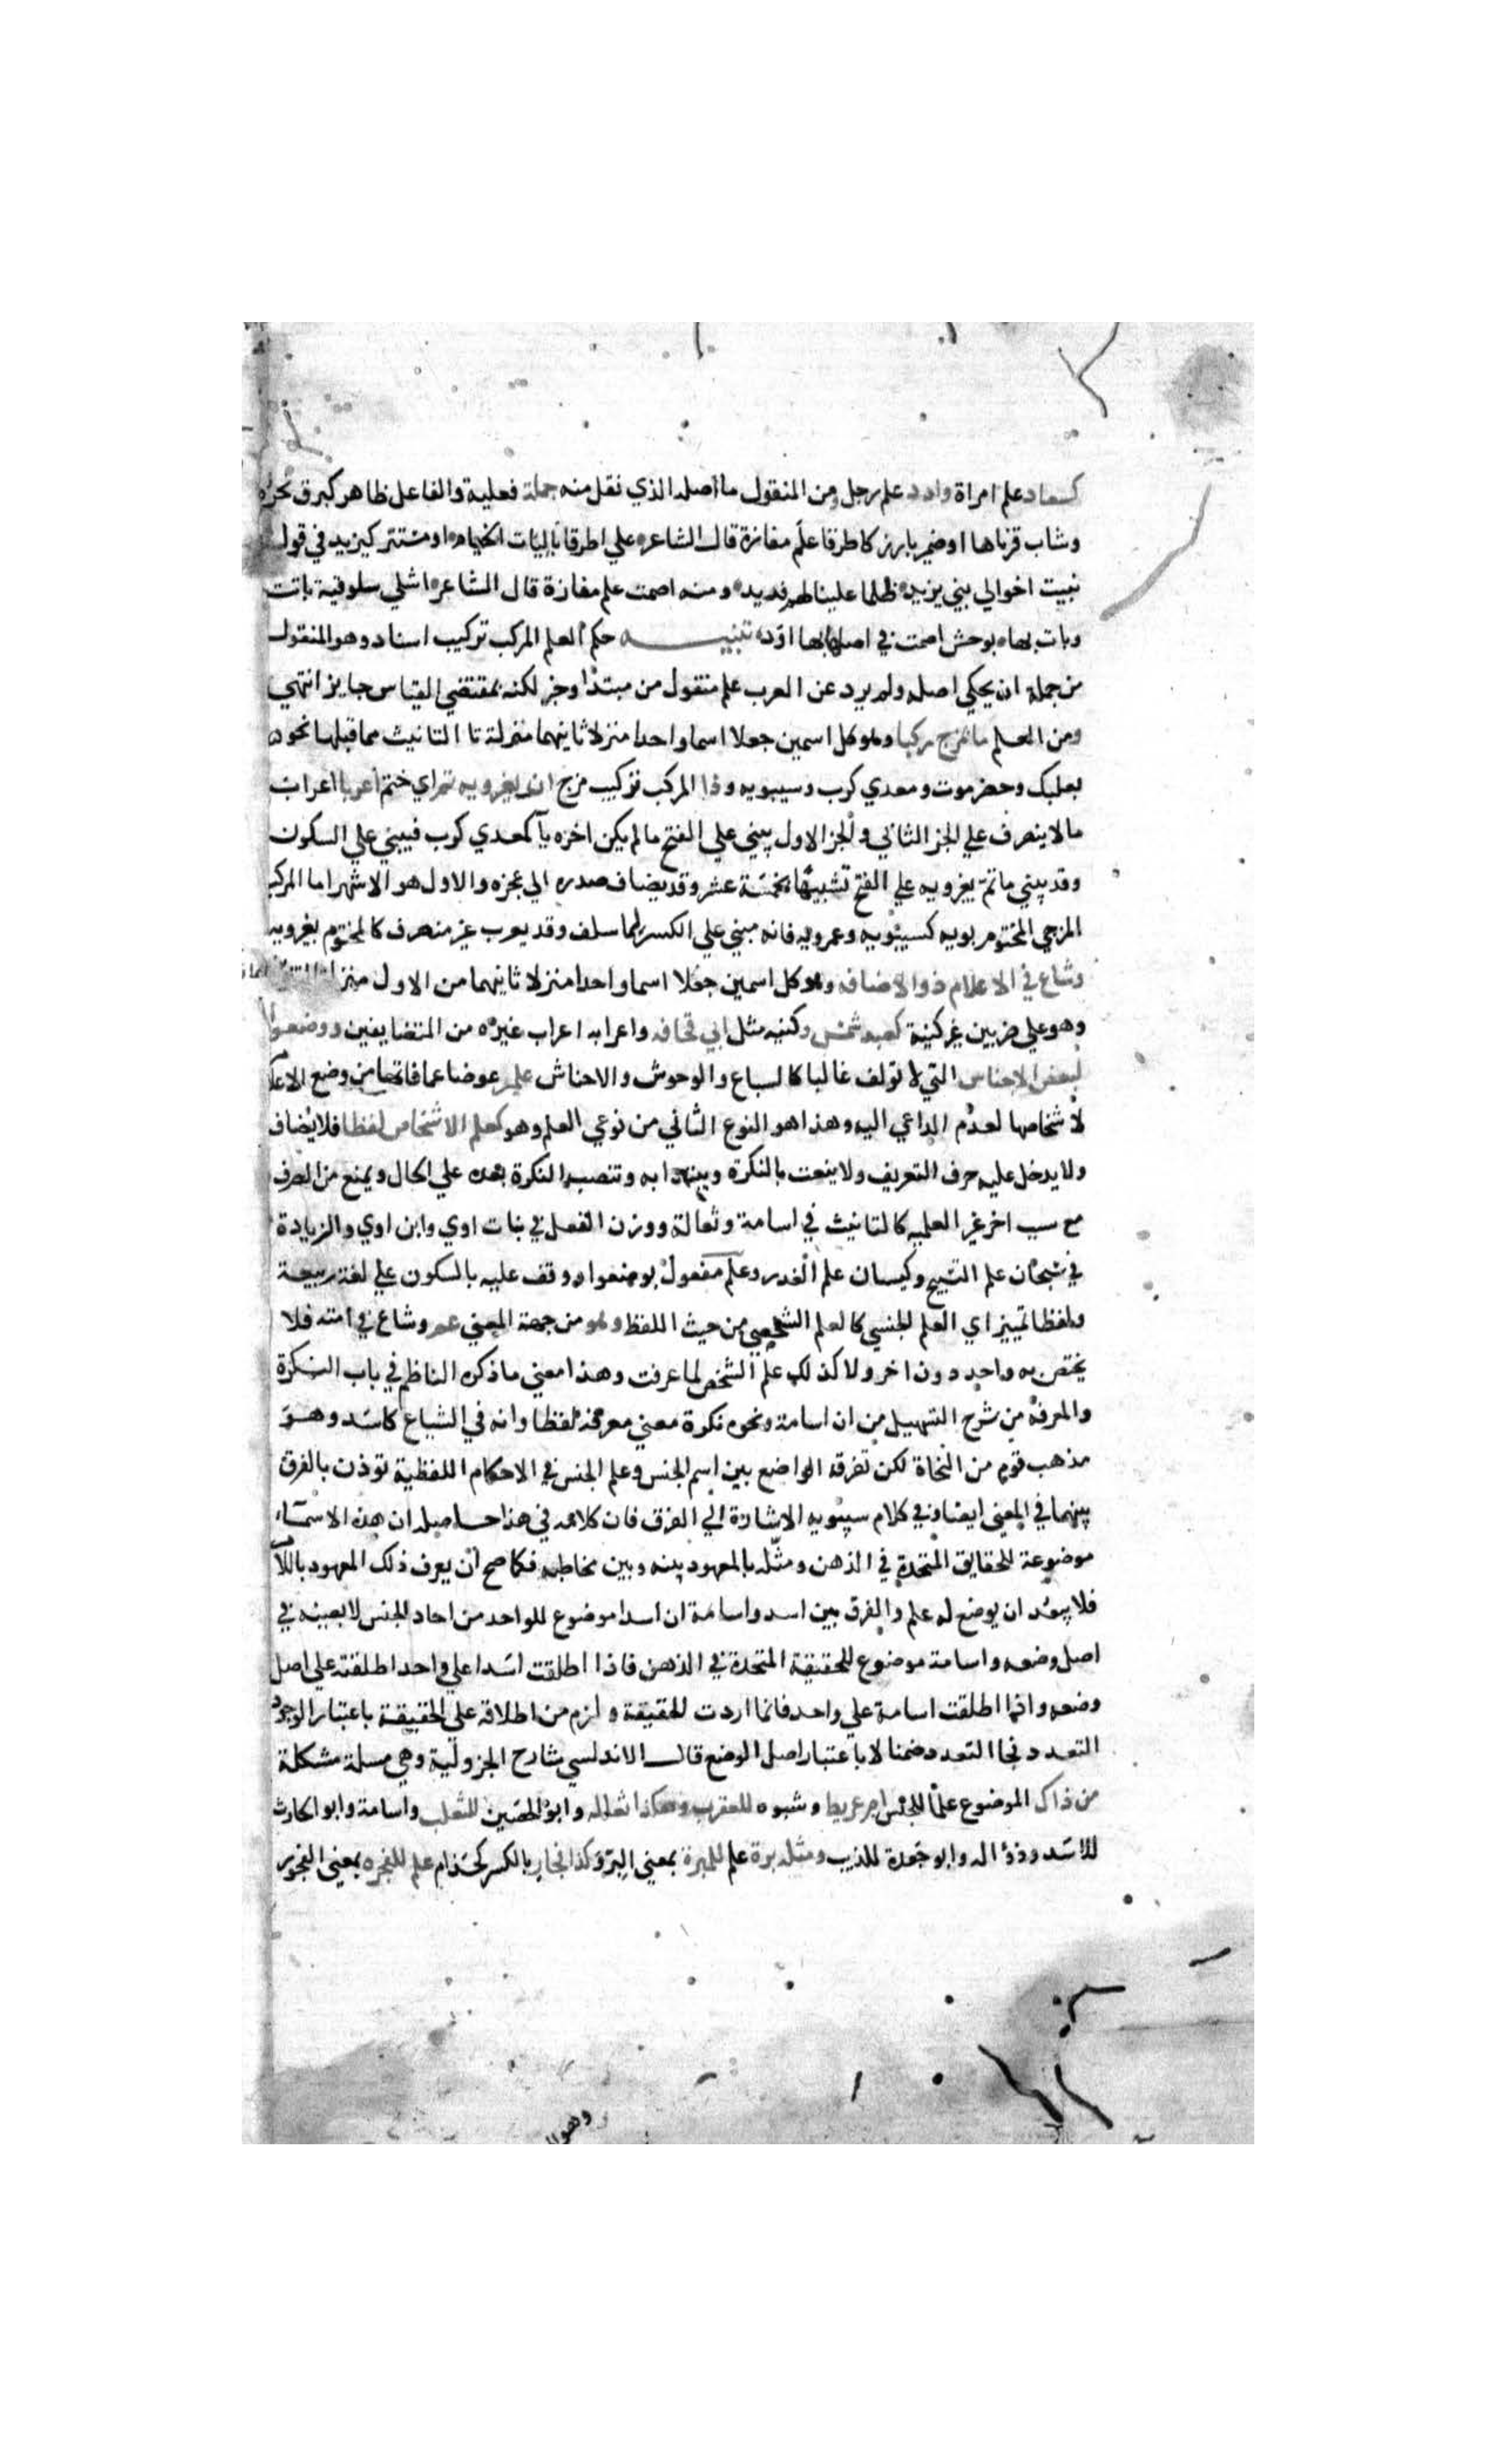 كسعاد علم امراة وادد علم رجل ومن المنقول ما اصله الذي نقل منه جملة فعلية والفاعل ظاهر كبرق نحره
وشاب قرناها او ضمير بارز كاطرقا علم مفازة قال الشاعر علي اطرقا باليات الخيام او مستتر كيزيد في قوله
نبيت اخوالي بني يزيد ظلما علينا لهم فديد ومنه اصمت علم مفازة قال الشاعر اشلي سلوقية باتت
وبات بها بوحش اصمت في اصلابها اود تنبيه حكم العلم المركب تركيب اسناد وهو المنقول
من جملة ان يحكي اصله ولم يرد عن العرب علم منقول من مبتدا وخبر لكنه بمقتضي القياس جايز انتهي
ومن العلم ما بمزج ركبا وهو كل اسمين جعلا اسما واحدا منزلا ثانيهما منزلة تا التانيث مما قبلها نحو
بعلبك وحضرموت ومعدي كرب وسيبويه وذا المركب تركيب مزج ان بغير ويه تم اي ختم اعربا اعراب
ما لا ينصرف علي الجز الثاني والجز الاول يبني علي الفتح ما لم يكن اخره يآ كمعدي كرب فيبني علي السكون
وقد يبني ما تم بغير ويه علي الفتح تشبيها بخمسة عشر وقد يضاف صدره الي عجزه والاول هو الاشهر اما المركب
المزجي المختوم بويه كسيبويه وعمرويه فانه مبني علي الكسر لما سلف وقد يعرب غير منصرف كالمختوم بغير ويه
وشاع في الاعلام ذو الاضافه وهو كل اسمين جعلا اسما واحدا منزلا ثانيهما من الاول منزلة التنوين
وهو علي ضربين غير كنية كعبد شمس وكنيه مثل ابي قحافه واعرابه اعراب غيره من المتضايفين ووضعوا
لبعض الاجناس التي لا تولف غالبا كالسباع والوحوش والاحناش علم عوضا عما فاتها من وضع الاعلام
لاشخاصها لعدم الداعي اليه وهذا هو النوع الثاني من نوعي العلم وهو كعلم الاشخاص لفظا فلا يضاف
ولا يدخل عليه حرف التعريف ولا ينعت بالنكرة ويبتدا به وتنصب النكرة بعده علي الحال ويمنع من الصرف
مع سبب اخر غير العلميه كالتانيث في اسامة وثعالة ووزن الفعل في بنات اوي وابن اوي والزيادة
في سبحان علم التسبيح وكيسان علم الغدر وعلم مفعول بوضعوا ووقف عليه بالسكون علي لغة ربيعة
ولفظا تمييز اي العلم الجنسي كالعلم الشخصي من حيث اللفظ وهو من جهة المعني عم وشاع في امته فلا
يختص به واحد دون اخر ولا كذلك علم الشخص لما عرفت وهذا معني ما ذكره الناظم في باب النكرة
والمعرفة من شرح التسهيل من ان اسامة ونحوه نكرة معني معرفة لفظا وانه في الشياع كاسد وهو
مذهب قوم من النحاة لكن تفرقة الواضع بين اسم الجنس وعلم الجنس في الاحكام اللفظية توذن بالفرق
بينهما في المعني ايضا وفي كلام سيبويه الاشارة الي الفرق فان كلامه في هذا حاصله ان هذه الاسماء
موضوعة للحقايق المتحدة في الذهن ومثله بالمعهود بينه وبين مخاطبه فكما صح ان يعرف ذلك المعهود باللام
فلا يبعد ان يوضع له علم والفرق بين اسد واسامة ان اسدا موضوع للواحد من احاد الجنس لا بعينه في
اصل وضعه واسامة موضوع للحقيقة المتحدة في الذهن فاذا اطلقت اسدا علي واحد اطلقته علي اصل
وضعه واذا اطلقت اسامة علي واحد فانما اردت الحقيقة ولزم من اطلاقه علي الحقيقة باعتبار الوجود
التعدد فجا التعدد ضمنا لا باعتبار اصل الوضع قال الاندلسي شارح الجزولية وهي مسلة مشكلة
من ذاك الموضوع علما للجنس ام عريط وشبوه للعقرب وهكذا ثعاله وابو الحصين للثعلب واسامة وابو الحارث
للاسد وذؤاله وابو جعدة للذيب ومثله برة علم للمبرة بمعني البر وكذا فجار بالكسر كحذام علم للفجره بمعني الفجور